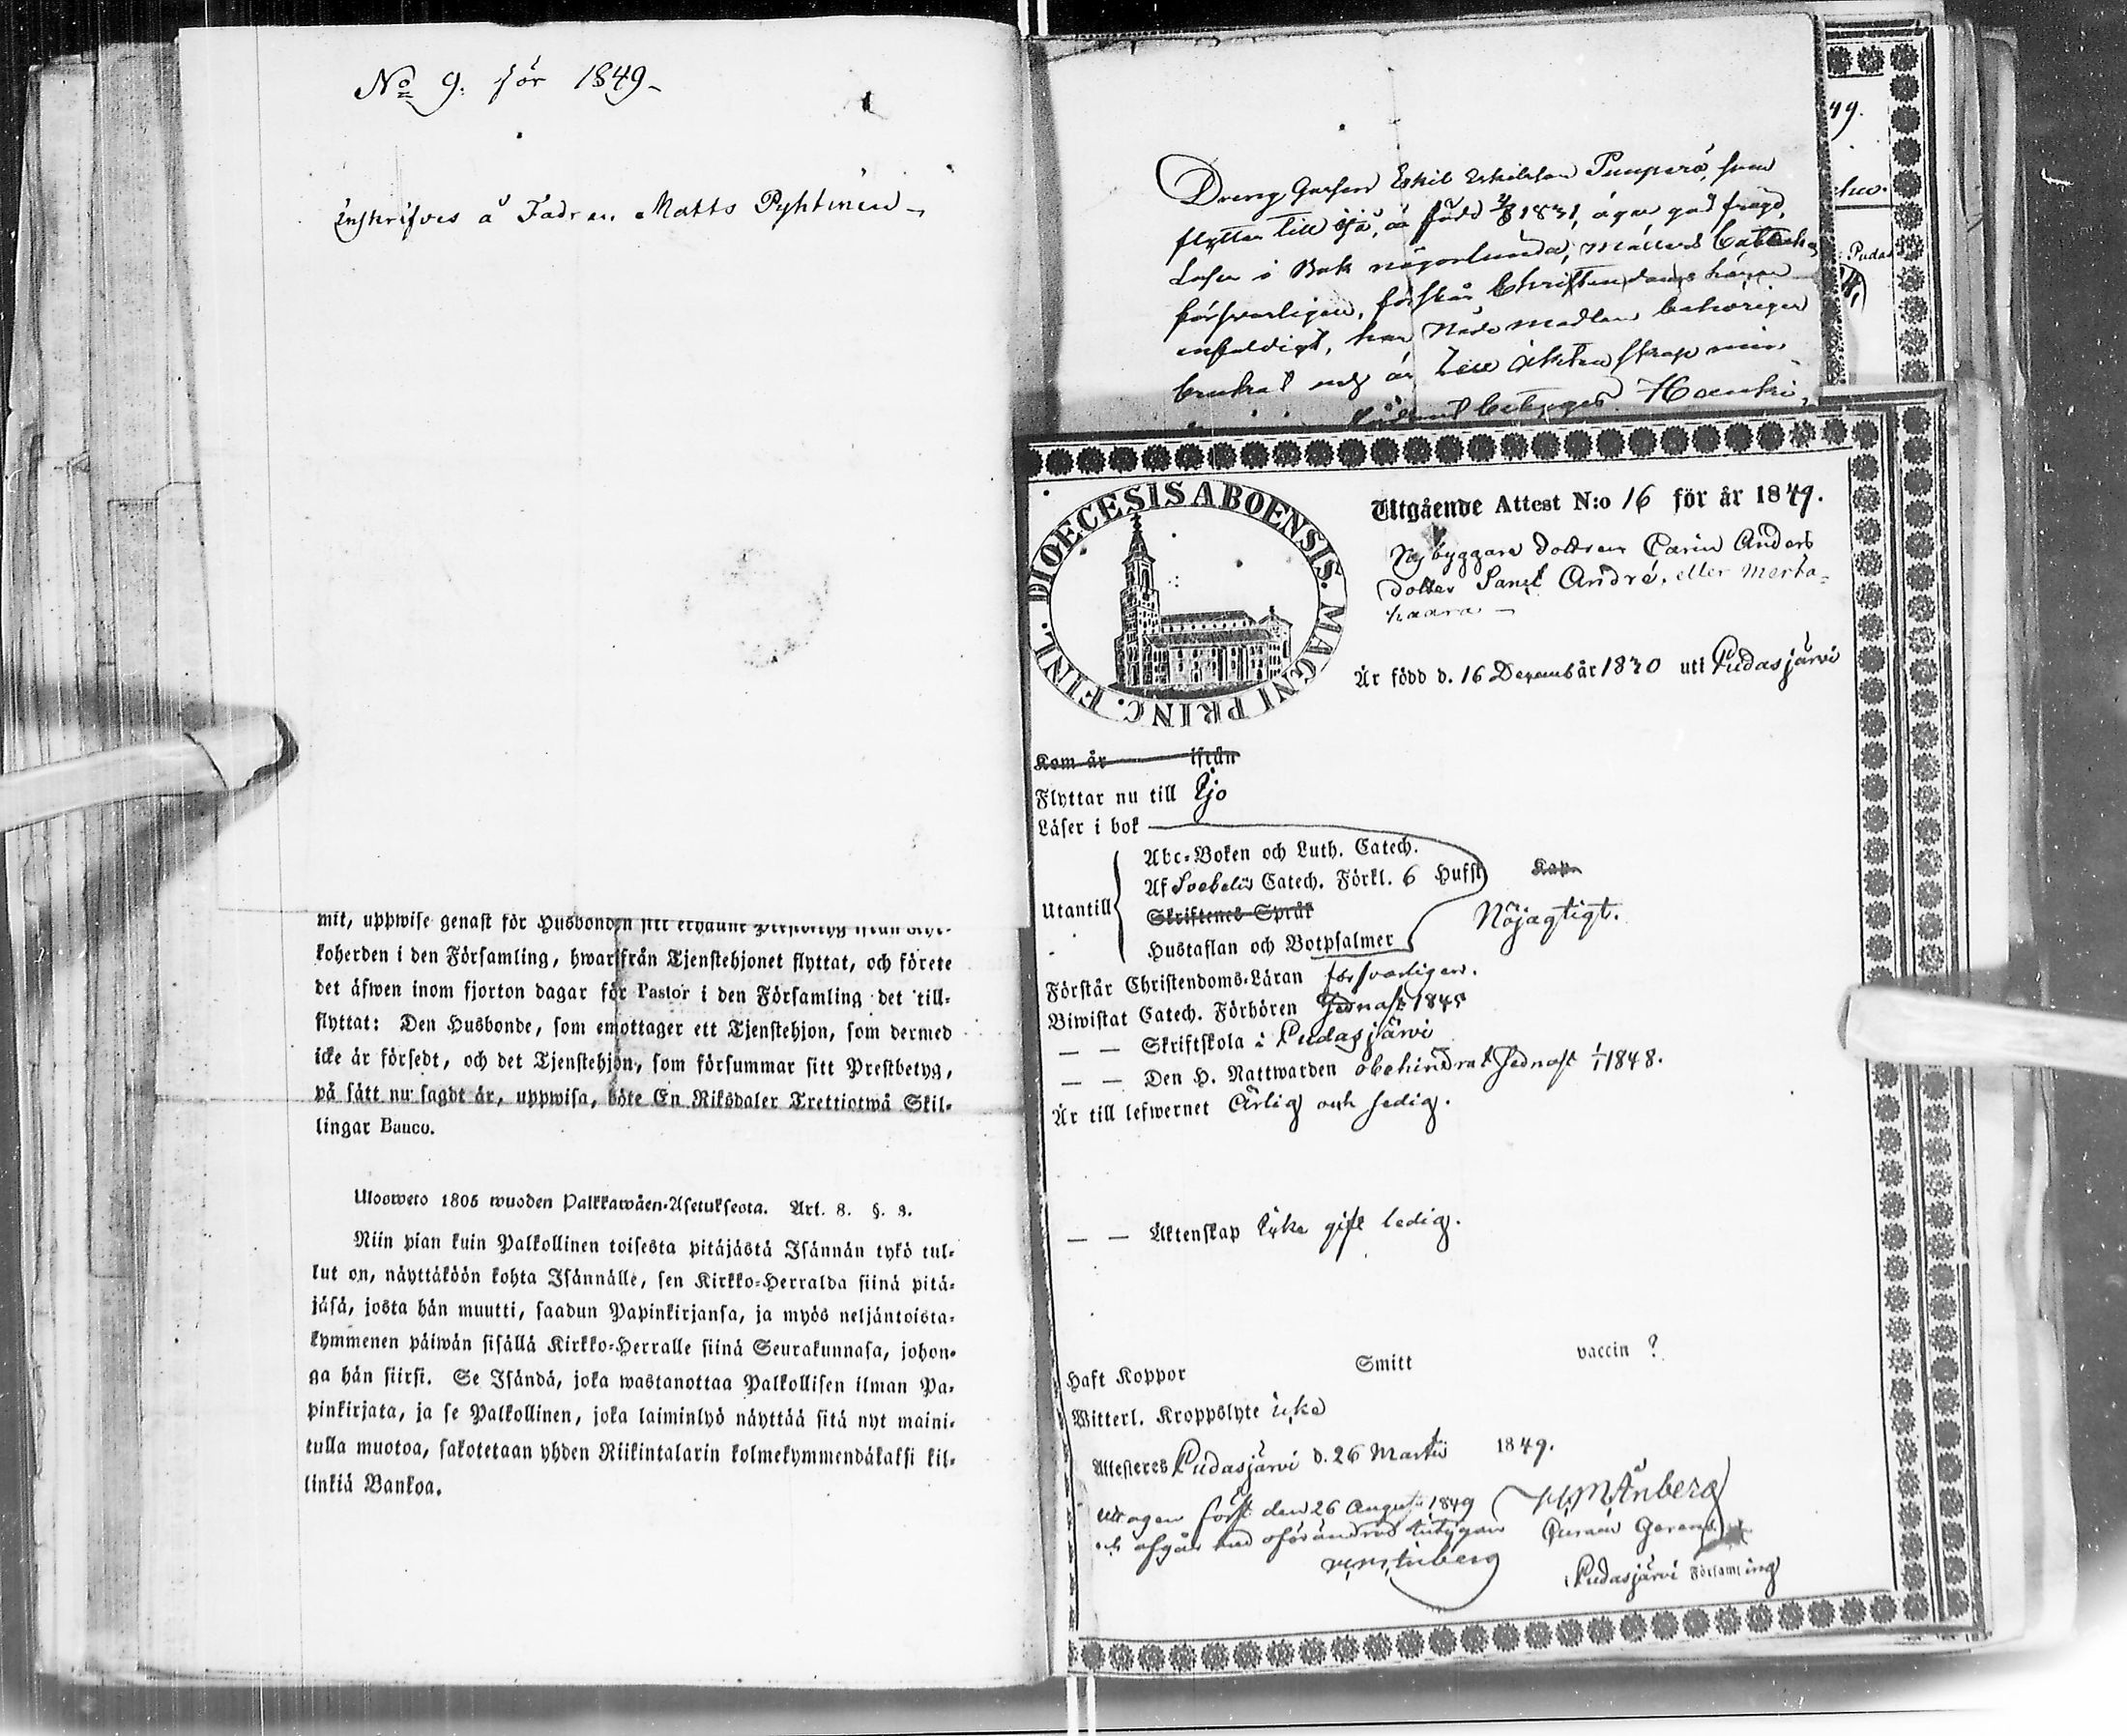 No 9. för 1849-
Inskrifves å Fadren Matts Pyhtinen-
mit, uppwise genast för Husbonden sitt
koherden i den Församling, hwarifrån Tjenstehjonet flyttat, och förete
det äfwen inom fjorton dagar för Pastor i den Församling det till-
flyttat: Den Husbonde, som emottager ett Tjenstehjon, som dermed
icke är försedt, och det Tjenstehjon, som försummar sitt Prestbetyg,
på sätt nu sagdt är, uppwisa, böte En Riksdaler Trettiotwå Skil-
lingar Banco.
Ulosweto 1805 wuoden Palkkawäen-Asetuksesta. Art. 8. §. 3.
Niin pian kuin Palkollinen toisesta pitäjästä Isännän tykö tul-
lut on, näyttäköön kohta Isännälle, sen Kirkko-Herralda siinä pitä-
jäsä, josta hän muutti, saadun Papinkirjansa, ja myös neljäntoista-
kymmenen päiwän sisällä Kirkko-Herralle siinä Seurakunnasa, johon-
ga hän siirsi. Se Isändä, joka wastanottaa Palkollisen ilman Pa-
pinkirjata, ja se Palkollinen, joka laiminlyö näyttää sitä nyt maini-
tulla muotoa, sakotetaan yhden Riikintalarin kolmekymmendäkaksi kil-
linkiä Bankoa.
Dreng Gossen Eskil Eskilsson Puuperä, som
flyttar till Ijå, är född 1831, äger god frägd,
Läser i Bok någorlunda, Mållers Cateches
försvarligen, förstår Christendoms läran
enfaldigt, har Nådemedlen behörigen
brukat och är till äktenskap
betygas Hauki-
49.
Pudas
DIOECESIS ABOENSIS. MAGNI PRINC. FINL.
Utgående Attest N:o 16 för år 1849.
Nybyggare dottren Carin Anders
dotter Sanct André, eller Merta-
haara -
Är född d. 16 Decemb år 1830 uti Pudasjärvi
Kom år ifrån
Flyttar nu till Ijo
Läser i bok
Utantill
Abc-Boken och Luth. Catech.
Af Svebelii Catech. Förkl. 6 Hufst
Kap.
Skriftenes Språk
Nöjagtigt.
Hustaflan och Botpsalmer
Förstår Christendoms-Läran försvarligen.
Biwistat Catech. Förhören sednast 1848
— — Skriftskola i Pudasjärvi
— — Den H. Nattwarden obehindrat sednast 1/1 1848.
Är till lefwernet Ärlig och sedig.
— — Äktenskap icke gift ledig.
Haft Koppor Smitt vaccin ?
Witterl. Kroppslyte icke
Attesteres Pudasjärvi d. 26 Martii 1849.
först den 26 Augusti 1849
och afgår med oförändrad
Pudasjärvi Församling